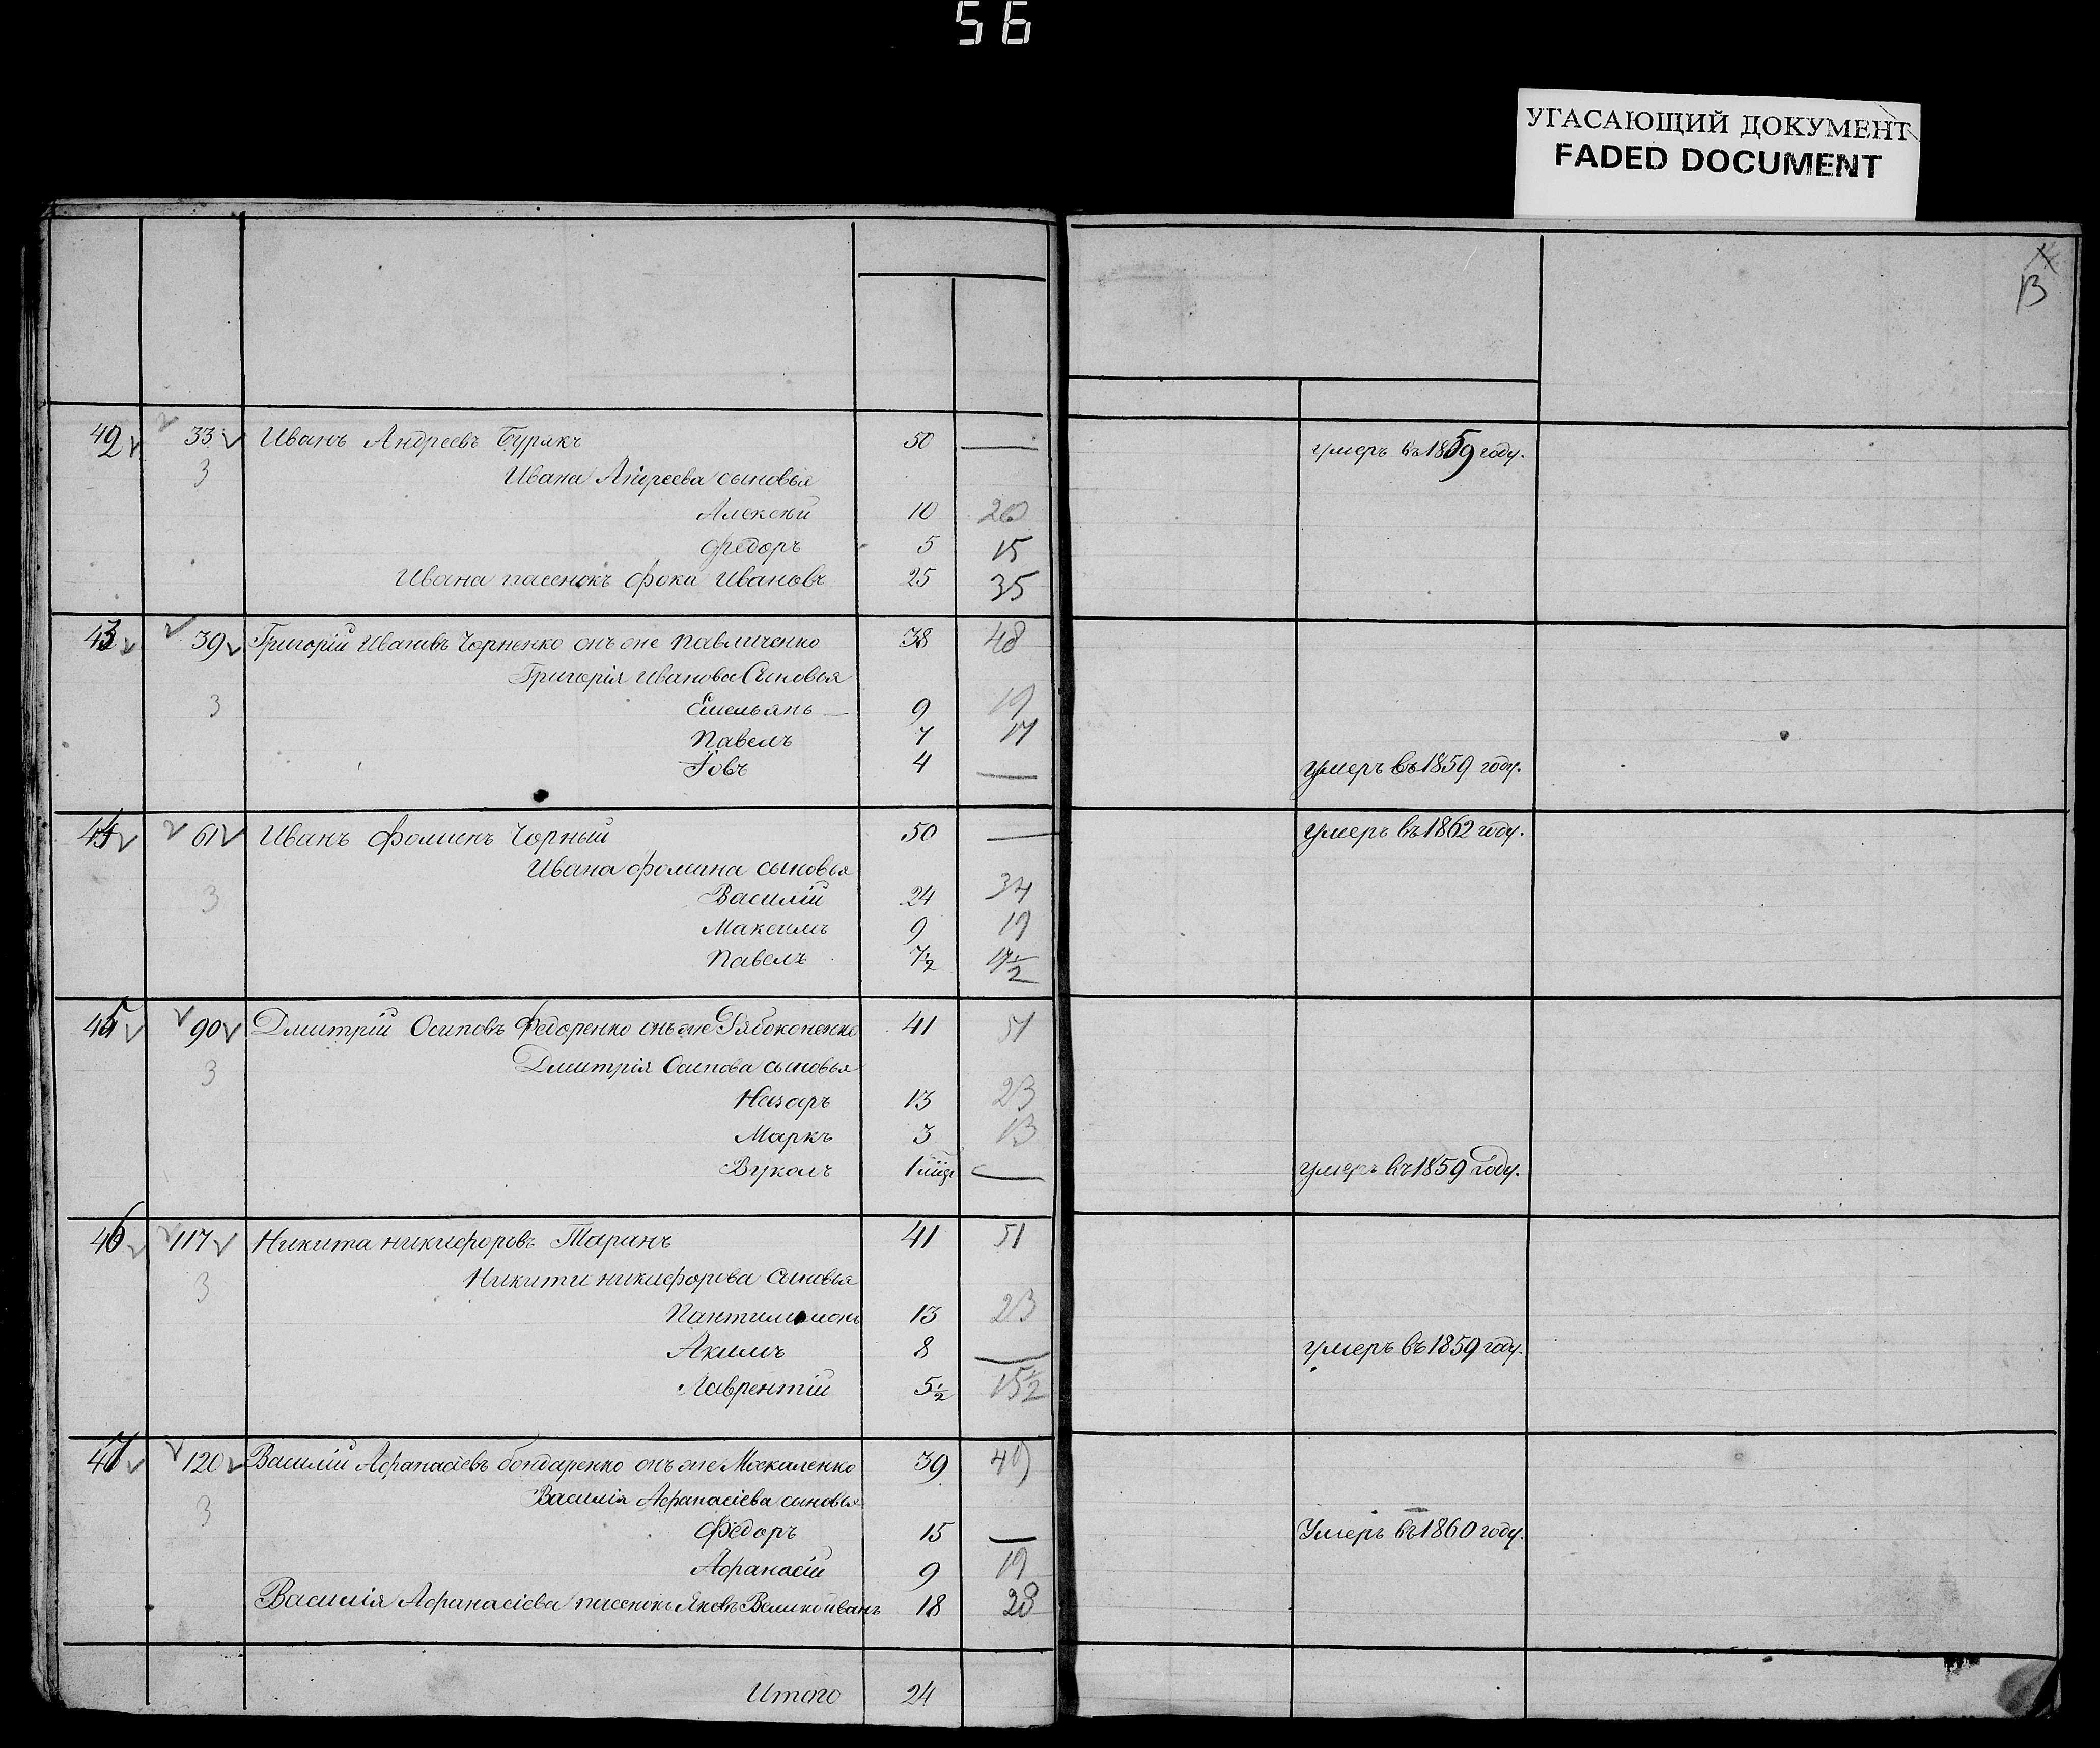 56
УГАСАЮЩИЙ ДОКУМЕНТ
FADED DOCUMENT
13
42 33 Иванъ Андреевъ Бурякъ 50 — умеръ въ 1859 году.
3 Ивана Андреева сыновья
Алексѣй 10 20
Федоръ 5 15
Ивана пасенокъ Фока Ивановъ 25 35
43 39 Григорій Ивановъ Чорненко онъ же Павличенко 38 48
Григорія Иванова Сыновья
3 Емельянъ — 9 19
Павелъ 7 17
Іовъ 4 — умеръ въ 1859 году.
44 61 Иванъ Фоминъ Чорный 50 — умеръ въ 1862 году.
Ивана Фомина сыновья
3 Василій 24 34
Максимъ 9 19
Павелъ 7½ 17½
45 90 Дмитрій Осиповъ Федоренко онъ же Рябоконенко 41 51
3 Дмитрія Осипова сыновья
Назаръ 13 23
Маркъ 3 13
Вуколъ 1 — умеръ въ 1859 году.
46 117 Никита Никифоровъ Таранъ 41 51
3 Никиты Никифорова Сыновья
Пантилимонъ 13 23
Акимъ 8 — умеръ въ 1859 году.
Лаврентій 5½ 15½
47 120 Василій Афанасіевъ Бондаренко онъ же Москаленко 39 49
3 Василія Афанасіева сыновья
Федоръ 15 — Умеръ въ 1860 году.
Афанасій 9 19
Василія Афанасіева пасенокъ Яковъ Великоиванъ 18 28
Итого 24